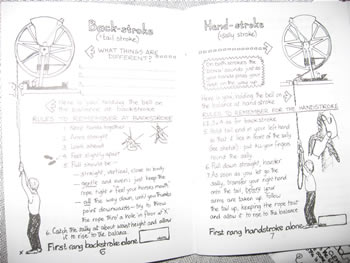 Back-stroke
(tail stroke)
WHAT THINGS ARE
DIFFERENT?
1.
2.
3.
4.
5.
Here is you holding the bell on
the balance at backstroke
RULES TO REMEMBER AT BACKSTROKE
1. Keep hands together
2. Arms straight
3. Look ahead
4. Feet slightly apart
5. Pull should be -
- straight, vertical, close to body
- gentle and even: just keep the
rope tight & "feel your hand's
- all the way down, until your thumbs
point downwards - try to throw
the rope thro' a hole in floor at 'X'.
6. Catch the sally at about waist height and allow
it to rise to the balance
First rang backstroke alone
6
Hand-stroke
(sally stroke)
On both strokes the
bell sounds just as
you
rope on the way up
Here is you holding the bell on
the balance at hand stroke
RULES TO REMEMBER FOR THE HANDSTROKE
1, 2, 3, 4 as for "backstroke"
5. Hold tail end of your left hand
so that it lies in front of the sally
(see sketch); put all your fingers
round the sally.
6. Pull down straight, harder
7. As soon as you let go the
sally, transfer your right hand
onto the tail, before your
arms are taken up. Follow
the tail up, keeping the rope taut
and allow it to rise to the balance
First rang handstroke alone
7